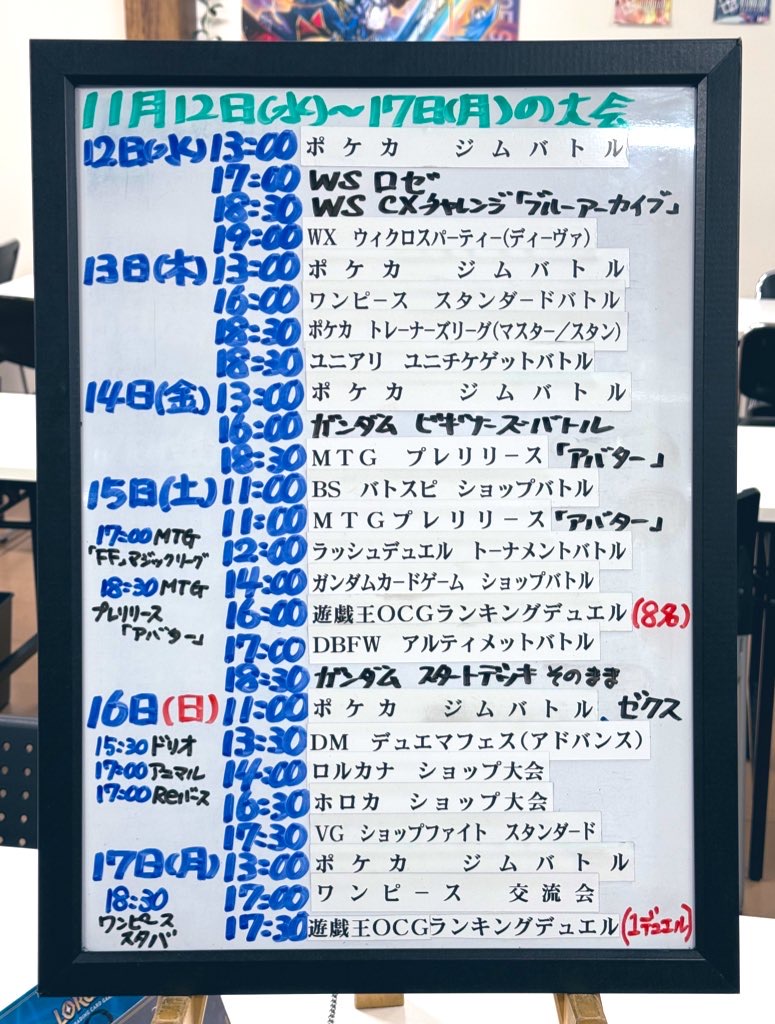 11月12日(水)～17日(月)の大会
12日(水) 13:00 ポケカ ジムバトル
17:00 WS ロゼ
18:30 WS CXチャレンジ「ブルーアーカイブ」
19:00 WX ウィクロスパーティー(ディーヴァ)
13日(木) 13:00 ポケカ ジムバトル
16:00 ワンピース スタンダードバトル
18:30 ポケカ トレーナーズリーグ(マスター/スタン)
18:30 ユニアリ ユニチケゲットバトル
14日(金) 13:00 ポケカ ジムバトル
16:00 ガンダム ビギナーズバトル
18:30 MTG プレリリース「アバター」
15日(土) 11:00 BS バトスピ ショップバトル
11:00 MTGプレリリース「アバター」
12:00 ラッシュデュエル トーナメントバトル
14:00 ガンダムカードゲーム ショップバトル
16:00 遊戯王OCGランキングデュエル(8名)
17:00 DBFW アルティメットバトル
18:30 ガンダム スタートデッキ そのまま
17:00 MTG
「FF」マジックリーグ
18:30 MTG
プレリリース
「アバター」
16日(日) 11:00 ポケカ ジムバトル、ゼクス
13:30 DM デュエマフェス(アドバンス)
14:00 ロルカナ ショップ大会
16:30 ホロカ ショップ大会
17:30 VG ショップファイト スタンダード
15:30 ドリオ
17:00 アニマル
17:00 Reバース
17日(月) 13:00 ポケカ ジムバトル
17:00 ワンピース 交流会
17:30 遊戯王OCGランキングデュエル(1デュエル)
18:30
ワンピース
スタバ